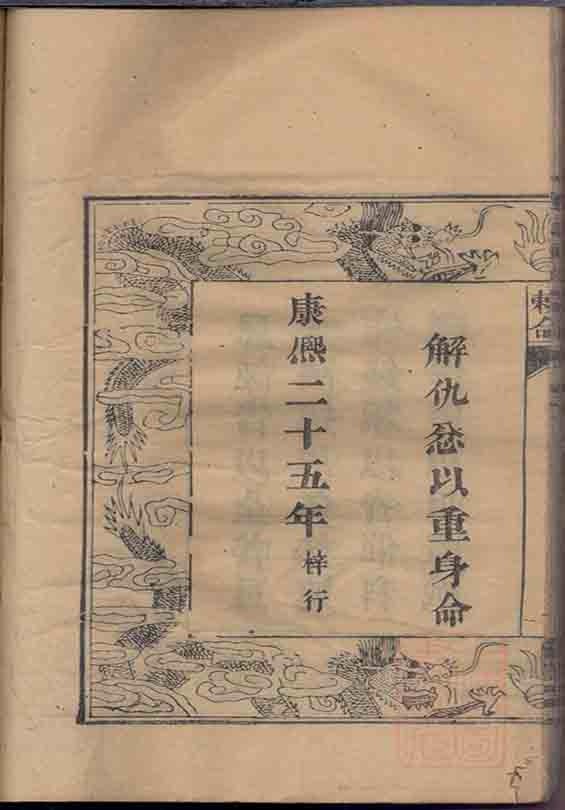 解仇忿以重身命
康熙二十五年梓行